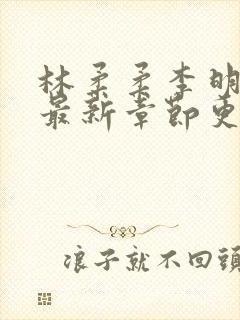 林柔柔李明
最新章節更
浪子就不回頭